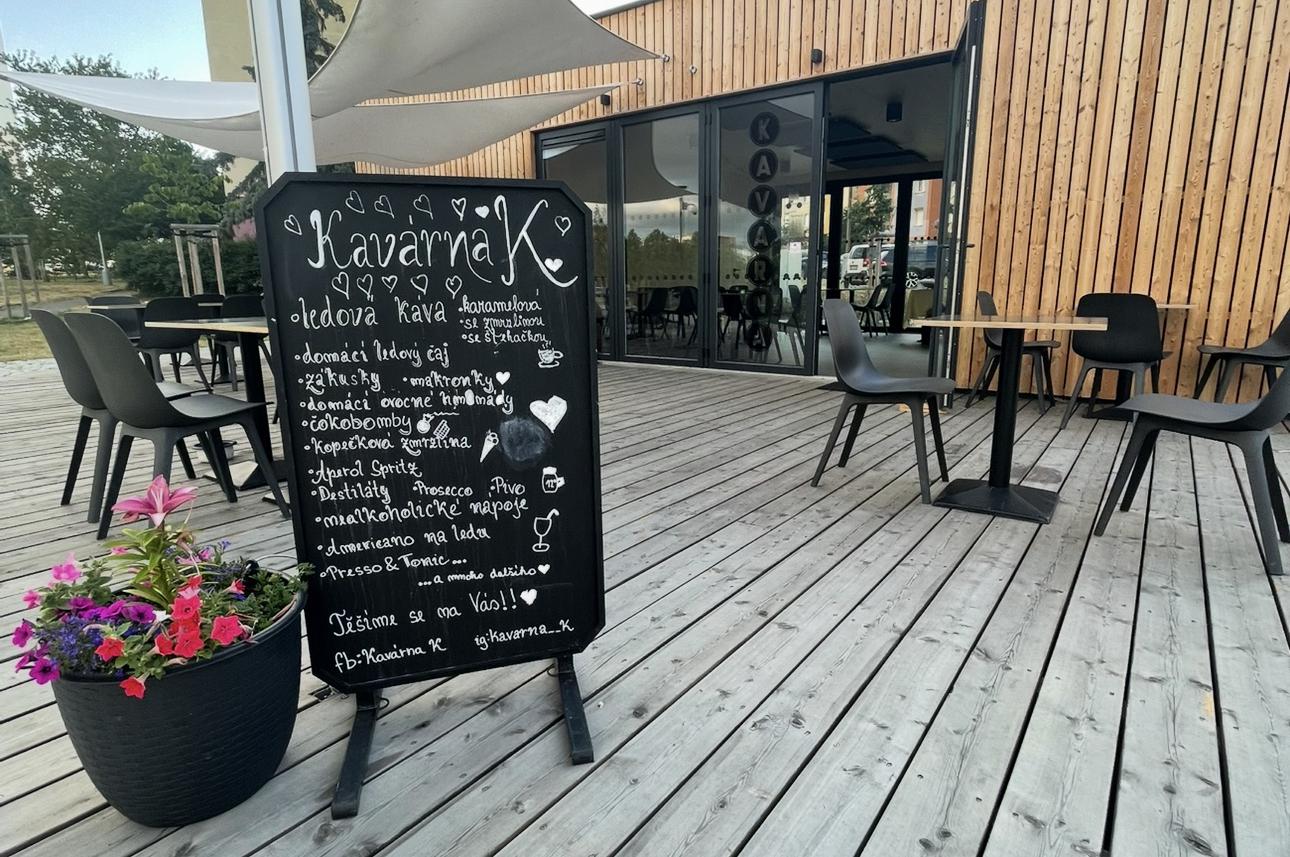 Kavárna K
•ledová káva •karamelová
•se zmrzlinou
•se šlehačkou
•domácí ledový čaj
•zákusky •makronky
•domácí ovocné limonády
•čokobomby
•Kopečková zmrzlina
•Aperol Spritz
•Destiláty •Prosecco •Pivo
•nealkoholické nápoje
•Americano na ledu
•Presso & Tonic...
...a mnoho dalšího
Těšíme se na Vás!!
fb:Kavárna K ig:kavarna__K
KAVÁRNA